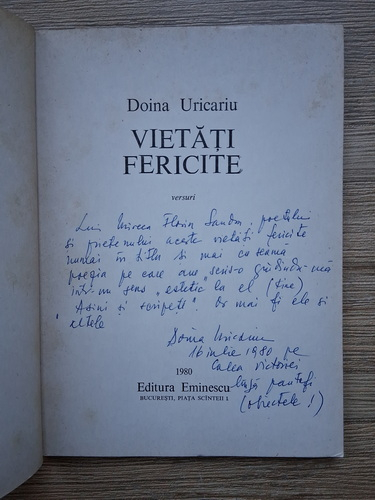 Doina Uricariu
VIETĂȚI
FERICITE
versuri
Lui Mircea Florin Șandru, poetului
și prietenului aceste vietăți fericite
numai în titlu și mai cu seamă
poezia pe care am scris-o gîndindu-mă
într-un sens "estetic" la el (tine)
"Asini și scripete". Or mai fi ele și
altele
Doina Uricariu
16 iulie 1980 pe
Calea Victoriei
lîngă pantofi
(obiectele!)
1980
Editura Eminescu
BUCUREȘTI, PIAȚA SCÎNTEII 1